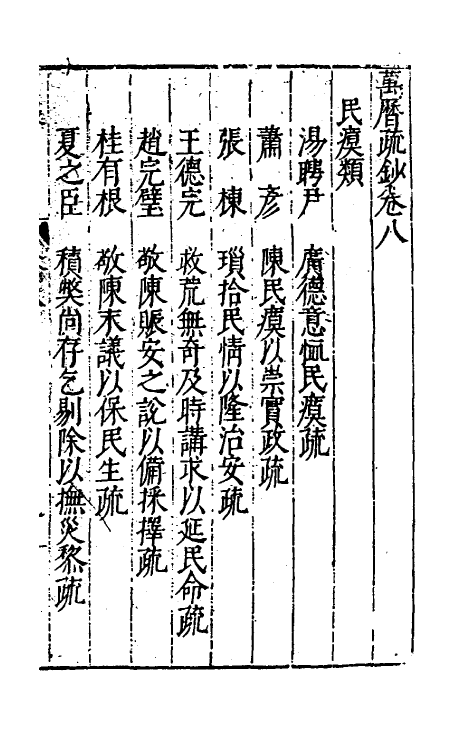 萬曆疏鈔卷八
民瘼類
湯聘尹 廣德意恤民瘼疏
蕭彥 陳民瘼以崇實政疏
張棟 瑣拾民情以隆治安疏
王德完 救荒無奇及時講求以延民命疏
趙完璧 敬陳賑安之說以備採擇疏
桂有根 敬陳末議以保民生疏
夏之臣 積弊尚存乞剔除以撫災黎疏